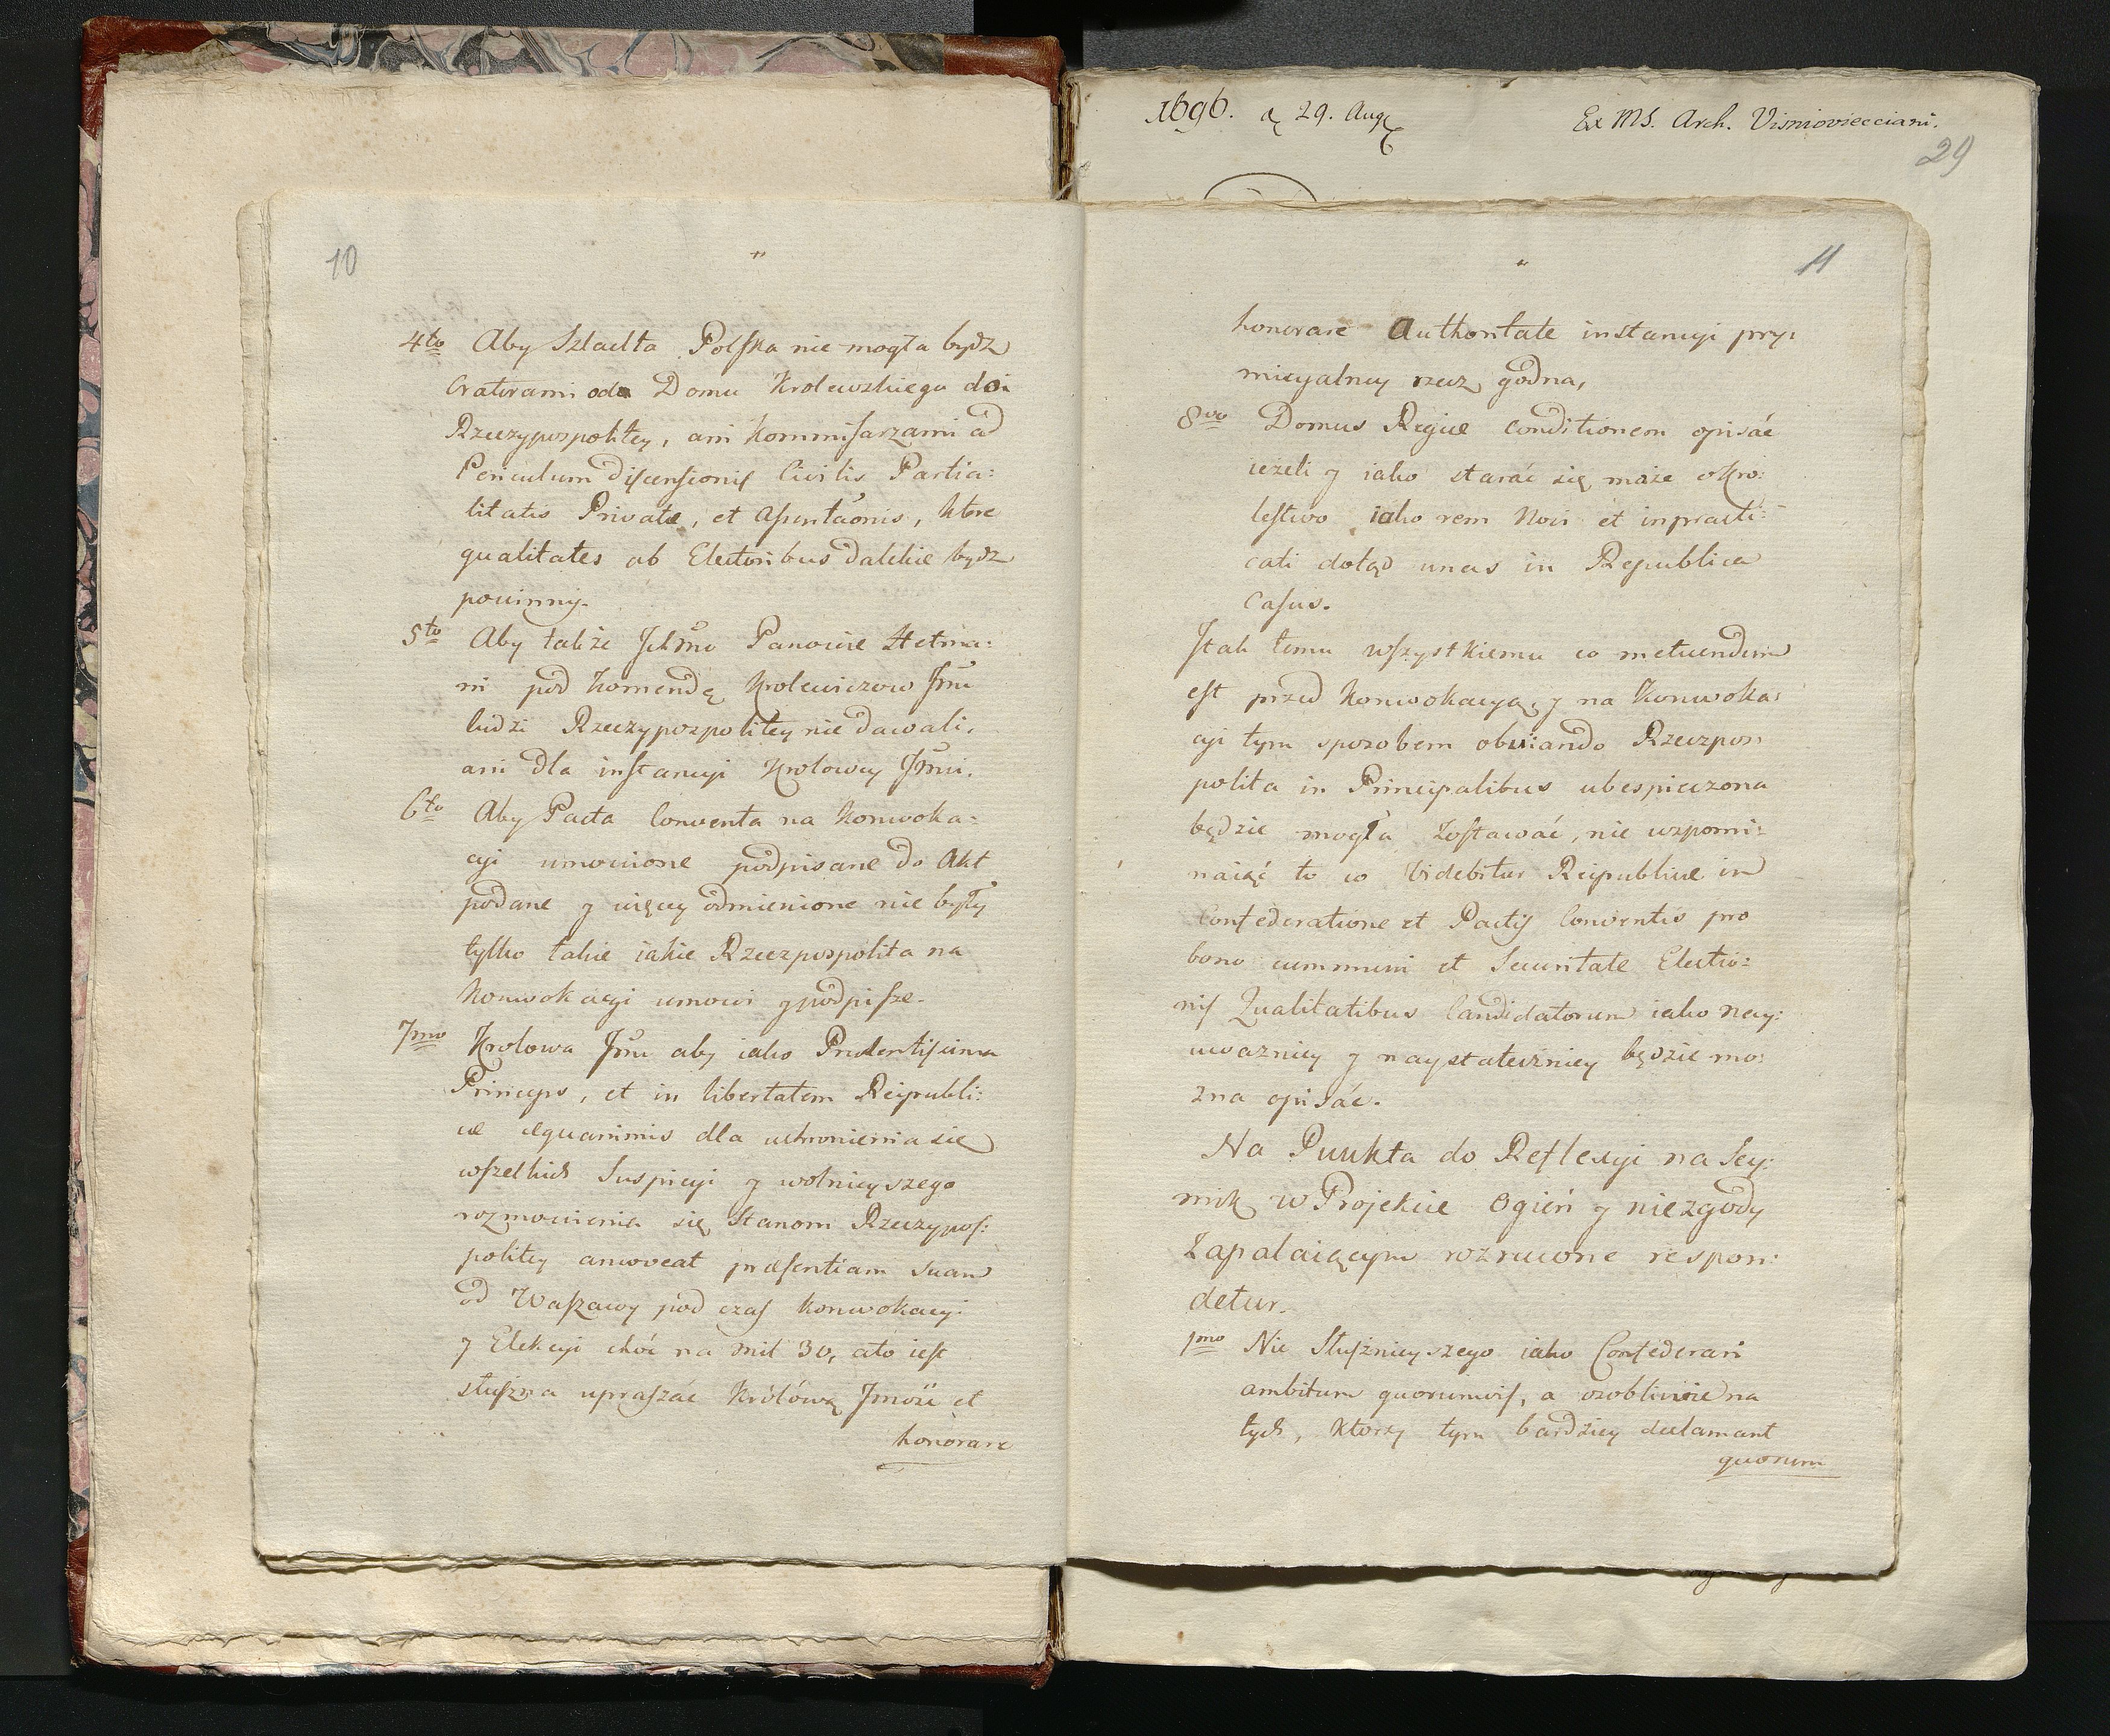 10
4to Aby Szlachta Polska nie mogła bydz
Oratorami od Domu Krolewskiego do
Rzeczypospolitey, ani Kommisarzami ad
Periculum discensionis Civilis Partia:
litatis Private, et , ktore
qualitates ab Electoribus dalekie bydz
powinny.
5to Aby takze Ichmo Panowie Hetma:
ni pod Komendę Krolewiczow Jmu
ludzi Rzeczypospolitey nie dawali,
ani dla instancyi Krolowey Jmui.
6to Aby Pacta Conventa na Konwoka:
cyi umowione podpisane do Akt
podane y więcy odmienione nie były
tylko takie iakie Rzeczpospolita na
Konwokacyi umowi y podpisze.
7mo Krolowa Jmu aby iako Prudentisima
Princeps, et in libertatem Reipubli:
cæ æquanimis dla uchronienia się
wszelkich Suspicyi y wolnieyszego
rozmowienia się Stanom Rzeczypos:
politey amoveat præsentiam suam
od Waszawy pod czas konwokacyi
y Elekcyi choć na mil 30, ato iest
słuszna upraszać Królówą Jmöü et
honorare
1696. d 29. Aug
Ex MS. Arch. Visniovieciani.
29
11
honorare Authoritate instancyi pry:
micyalney rzecz godna,
8vo Domus Regiæ conditionem opisać
ieżeli y iako starać się może o Kro:
lestwo iako rem Novi et inpracti:
cati dotąd unas in Republica
Casus.
Jtak temu wszystkiemu co metuendum
est przed Konwokacyą, y na Konwoka:
cyi tym sposobem obviando Rzeczpos:
polita in Principalibus ubespieczona
będzie mogła zostawać, nie wspomi:
naiąć to co Videbitur Reipublicæ in
Confederatione et Pactis Conventis pro
bono cummuni et Securitate Electio:
nis Qualitatibus Candidatorum iako nay:
uwazniey y naystateczniey będzie mo:
zna opisać.
Na Punkta do Reflexyi na Sey:
mik w Projekcie Ogień y niezgody
Zapalaiącym rozrucone respon:
detur.
1mo Nic Słuszniey szego iako Confederari
ambitum quorumvis, a osobliwie na
tych, ktorzy tym bardziey declamant
quorum